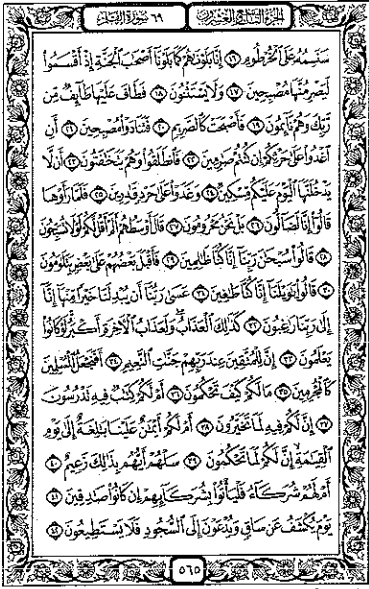 الجزء التاسع والعشرون
سُورَةُ
سَنَسِمُهُۥ عَلَى ٱلْخُرْطُومِ ١٦ إِنَّا بَلَوْنَٰهُمْ كَمَا بَلَوْنَآ أَصْحَٰبَ ٱلْجَنَّةِ إِذْ أَقْسَمُوا۟
لَيَصْرِمُنَّهَا مُصْبِحِينَ ١٧ وَلَا يَسْتَثْنُونَ ١٨ فَطَافَ عَلَيْهَا طَآئِفٌ مِّن
رَّبِّكَ وَهُمْ نَآئِمُونَ ١٩ فَأَصْبَحَتْ كَٱلصَّرِيمِ ٢٠ فَتَنَادَوْا۟ مُصْبِحِينَ ٢١ أَنِ
ٱغْدُوا۟ عَلَىٰ حَرْثِكُمْ إِن كُنتُمْ صَٰرِمِينَ ٢٢ فَٱنطَلَقُوا۟ وَهُمْ يَتَخَٰفَتُونَ ٢٣ أَن لَّا
يَدْخُلَنَّهَا ٱلْيَوْمَ عَلَيْكُم مِّسْكِينٌ ٢٤ وَغَدَوْا۟ عَلَىٰ حَرْدٍ قَٰدِرِينَ ٢٥ فَلَمَّا رَأَوْهَا
قَالُوٓا۟ إِنَّا لَضَآلُّونَ ٢٦ بَلْ نَحْنُ مَحْرُومُونَ ٢٧ قَالَ أَوْسَطُهُمْ أَلَمْ أَقُل لَّكُمْ لَوْلَا تُسَبِّحُونَ
٢٨ قَالُوا۟ سُبْحَٰنَ رَبِّنَآ إِنَّا كُنَّا ظَٰلِمِينَ ٢٩ فَأَقْبَلَ بَعْضُهُمْ عَلَىٰ بَعْضٍ يَتَلَٰوَمُونَ
٣٠ قَالُوا۟ يَٰوَيْلَنَآ إِنَّا كُنَّا طَٰغِينَ ٣١ عَسَىٰ رَبُّنَآ أَن يُبْدِلَنَا خَيْرًا مِّنْهَآ إِنَّآ
إِلَىٰ رَبِّنَا رَٰغِبُونَ ٣٢ كَذَٰلِكَ ٱلْعَذَابُ وَلَعَذَابُ ٱلْءَاخِرَةِ أَكْبَرُ لَوْ كَانُوا۟
يَعْلَمُونَ ٣٣ إِنَّ لِلْمُتَّقِينَ عِندَ رَبِّهِمْ جَنَّٰتِ ٱلنَّعِيمِ ٣٤ أَفَنَجْعَلُ ٱلْمُسْلِمِينَ
كَٱلْمُجْرِمِينَ ٣٥ مَا لَكُمْ كَيْفَ تَحْكُمُونَ ٣٦ أَمْ لَكُمْ كِتَٰبٌ فِيهِ تَدْرُسُونَ
٣٧ إِنَّ لَكُمْ فِيهِ لَمَا تَخَيَّرُونَ ٣٨ أَمْ لَكُمْ أَيْمَٰنٌ عَلَيْنَا بَٰلِغَةٌ إِلَىٰ يَوْمِ
ٱلْقِيَٰمَةِ إِنَّ لَكُمْ لَمَا تَحْكُمُونَ ٣٩ سَلْهُمْ أَيُّهُم بِذَٰلِكَ زَعِيمٌ ٤٠
أَمْ لَهُمْ شُرَكَآءُ فَلْيَأْتُوا۟ بِشُرَكَآئِهِمْ إِن كَانُوا۟ صَٰدِقِينَ ٤١
يَوْمَ يُكْشَفُ عَن سَاقٍ وَيُدْعَوْنَ إِلَى ٱلسُّجُودِ فَلَا يَسْتَطِيعُونَ ٤٢
٥٦٥